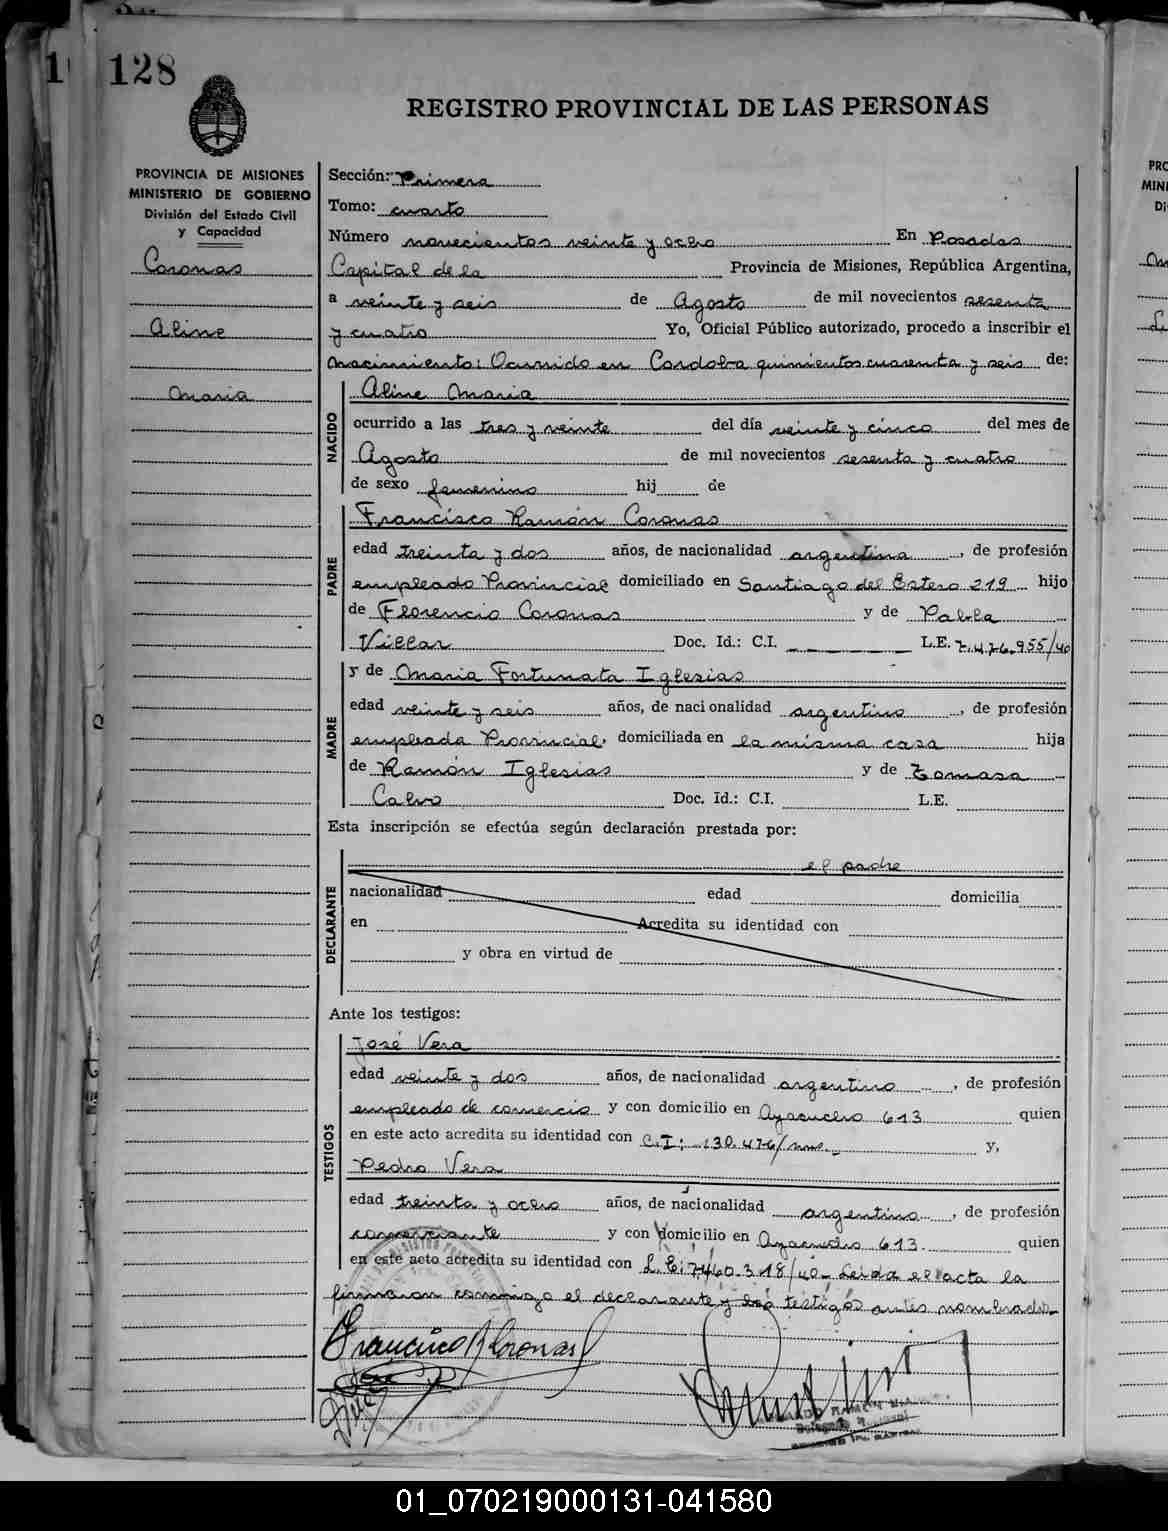 128
REGISTRO PROVINCIAL DE LAS PERSONAS
PROVINCIA DE MISIONES
MINISTERIO DE GOBIERNO
División del Estado Civil
y Capacidad
Coronas
Aline
Maria
Sección: Primera
Tomo: cuarto
Número novecientos veinte y ocho En Posadas
Capital de la Provincia de Misiones, República Argentina,
a veinte y seis de Agosto de mil novecientos sesenta
y cuatro Yo, Oficial Público autorizado, procedo a inscribir el
nacimiento: Ocurrido en Cordoba quinientos cuarenta y seis de:
NACIDO
Aline Maria
ocurrido a las tres y veinte del día veinte y cinco del mes de
Agosto de mil novecientos sesenta y cuatro
de sexo femenino hij de
PADRE
Francisco Ramón Coronas
edad treinta y dos años, de nacionalidad argentina, de profesión
empleado Provincial domiciliado en Santiago del Estero 219 hijo
de Florencio Coronas y de Pabla
Villar Doc. Id.: C.I. L.E. 7.476.955/40
MADRE
y de Maria Fortunata Iglesias
edad veinte y seis años, de nacionalidad argentino, de profesión
empleada Provincial, domiciliada en la misma casa hija
de Ramón Iglesias y de Tomasa
Calvo Doc. Id.: C.I. L.E.
Esta inscripción se efectúa según declaración prestada por:
DECLARANTE
el padre
nacionalidad edad domicilia
en Acredita su identidad con
y obra en virtud de
Ante los testigos:
TESTIGOS
José Vera
edad veinte y dos años, de nacionalidad argentino, de profesión
empleado de comercio y con domicilio en Ayacucho 613 quien
en este acto acredita su identidad con C.I: 130.476/ y,
Pedro Vera
edad treinta y ocho años, de nacionalidad argentino, de profesión
comerciante y con domicilio en Ayacucho 613 quien
en este acto acredita su identidad con L.E. 7.460.318/40- Leida el acta la
firmaron conmigo el declarante y los testigos antes nombrados-
Francisco R Coronas
01_070219000131-041580